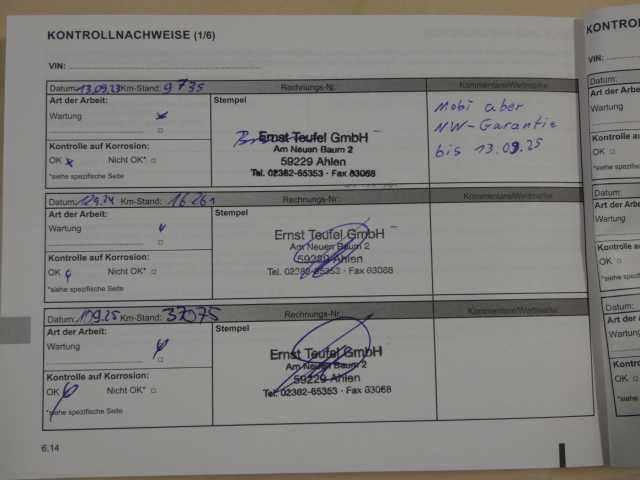 KONTROLLNACHWEISE (1/6)
VIN:
Datum: 13.09.23 Km-Stand: 9735 Rechnungs-Nr.: Kommentare/Werkstätte
Art der Arbeit:
Wartung
Kontrolle auf Korrosion:
OK Nicht OK*
*siehe spezifische Seite
Stempel
Ernst Teufel GmbH
Am Neuen Baum 2
59229 Ahlen
Tel. 02382-65353 · Fax 63068
Mobi über
NW-Garantie
bis 13.09.25
Datum: Km-Stand: 16261 Rechnungs-Nr.: Kommentare/Werkstätte
Art der Arbeit:
Wartung
Kontrolle auf Korrosion:
OK Nicht OK*
*siehe spezifische Seite
Stempel
Ernst Teufel GmbH
Am Neuen Baum 2
59229 Ahlen
Tel. 02382-65353 · Fax 63068
Datum: Km-Stand: 37075 Rechnungs-Nr.: Kommentare/Werkstätte
Art der Arbeit:
Wartung
Kontrolle auf Korrosion:
OK Nicht OK*
*siehe spezifische Seite
Stempel
Ernst Teufel GmbH
Am Neuen Baum 2
59229 Ahlen
Tel. 02382-65353 · Fax 63068
6.14
KONTROL
VIN:
Datum:
Art der Arbe
Wartung
Kontrolle a
OK
*siehe spezifis
Datum:
Art der Arbe
Wartung
Kontrolle a
OK
*siehe spezifi
Datum:
Art der
Wartung
Kontro
OK
*siehe sp